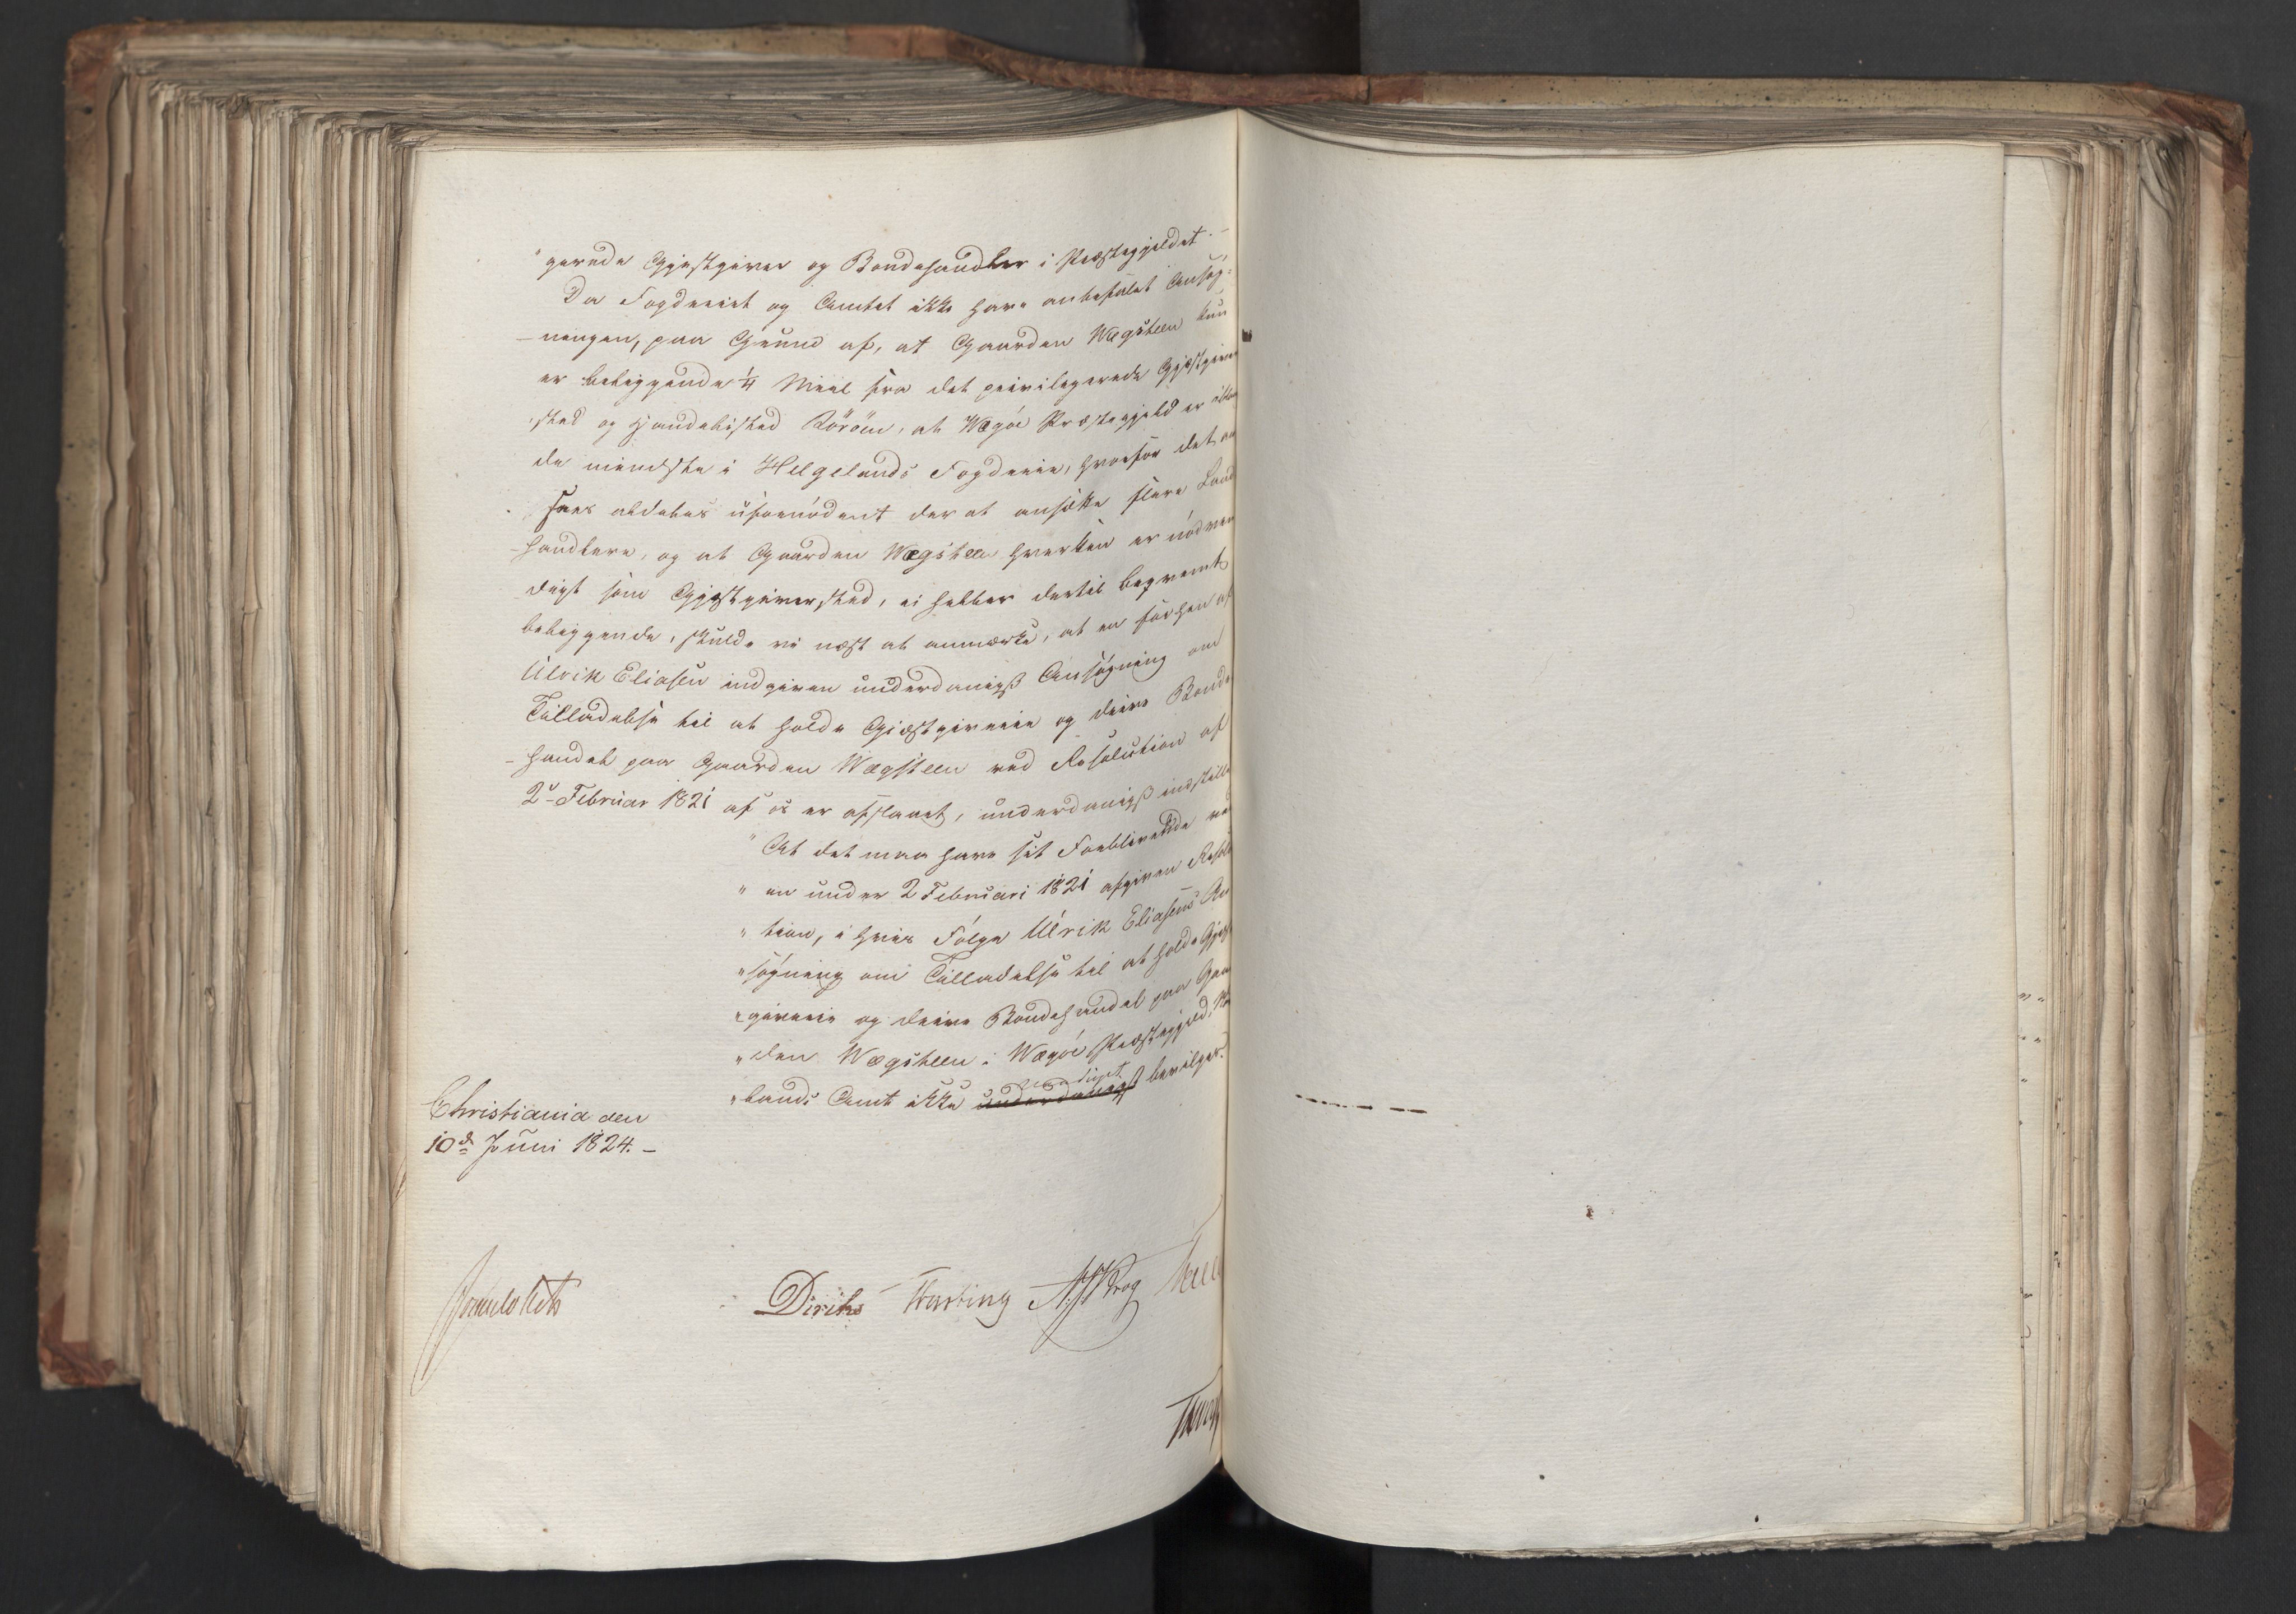 "gerede Gjestgiver og Bondehandler i Præstegjeldet.–
Da Fogderiet og Amtet ikke have anbefalet Ansøg=
–ningen, paa Grund af, at Gaarden Wægsteen kun
er beliggende ¼ Miil fra det privilegerede Gjæstgiver
sted og Handelssted Röröen, at Wægöe Præstegjeld er iblandt
de mindste i Helgelands Fogderie, hvorfor det an
sees aldeles ufornödent der at ansætte flere Land
–handlere, og at Gaarden Wægsteen hverken er nödven
digt som Gjestgiversted, ei heller dertil beqvemt
beliggende, skulde vi næst at anmærke, at en forhen af
Ulrik Eliasen indgiven underdanigst Ansøgning om
Tilladelse til at holde Gjæstgiverie og drive Bonde
–handel paa Gaarden Wægsteen ved Resolution af
2den Februar 1821 af os er afslaaet, underdanigst indstille
"At det maa have sit Forblivende ved
" en under 2 Februari 1821 afgiven Resolu
" tion, i hvis Følge Ulrik Eliasens An
"søgning om Tilladelse til at holde Gjest
"giverie og drive Bondehandel paa Gaar
"den Wægsteen i Wægöe Præstegjeld, Nord
"lands Amt ikke naadigst underdanigst bevilges.
Christiania den
10de Juni 1824. –
Diriks Krog